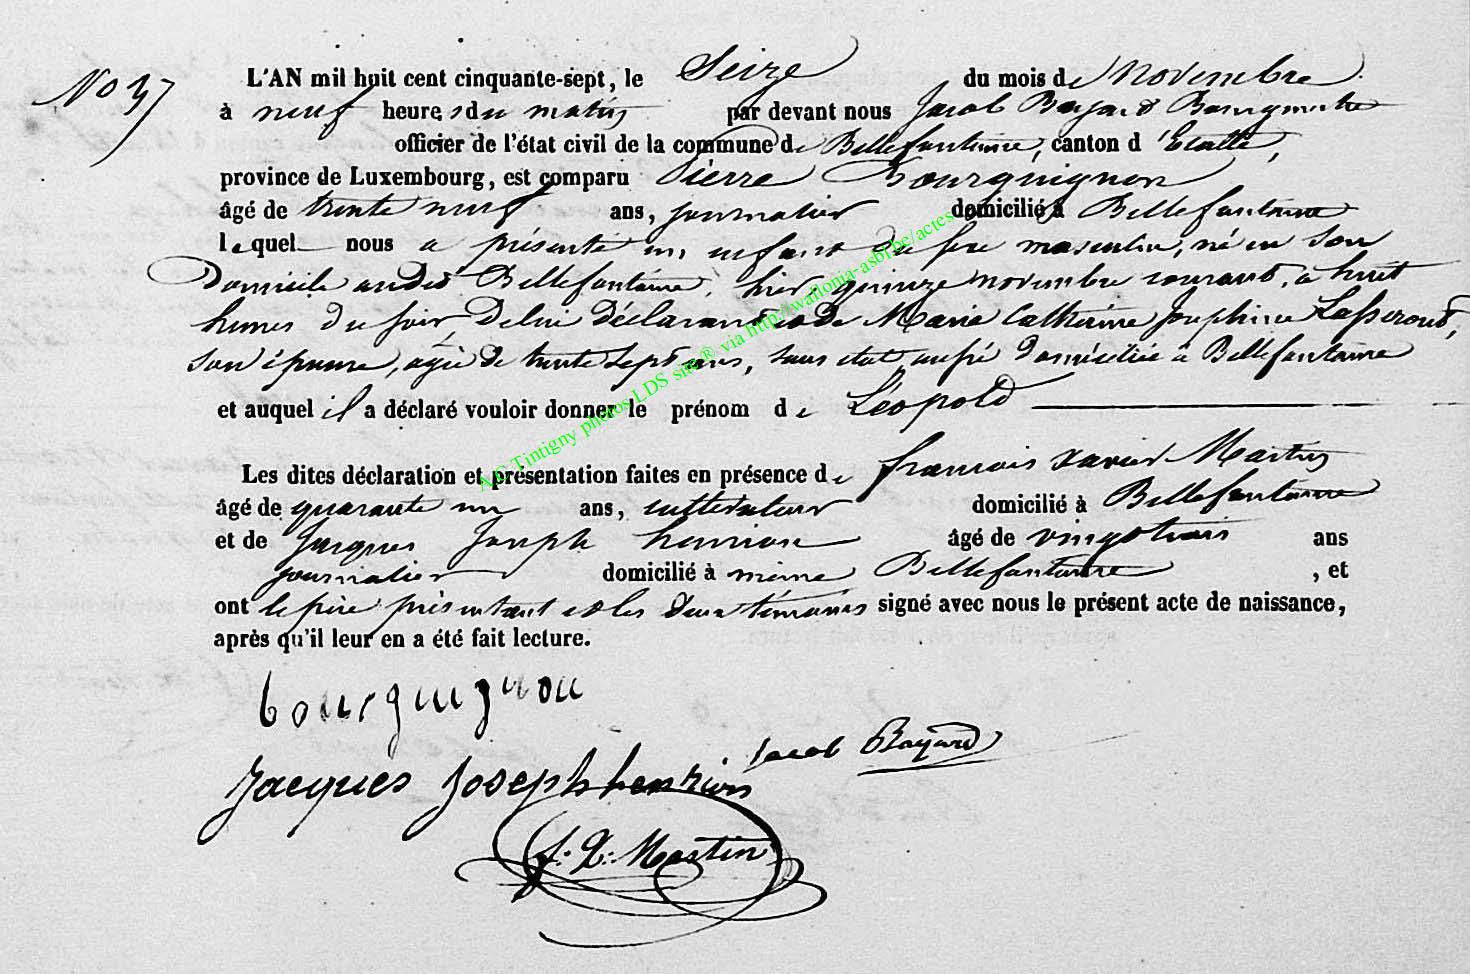 No 37
L'AN mil huit cent cinquante-sept, le Seize du mois de Novembre
à neuf heures du matin par devant nous Jacob Bayard Bourgmestre
officier de l'état civil de la commune de Bellefontaine, canton d'Etalle,
province de Luxembourg, est comparu Pierre Bourguignon
âgé de trente neuf ans, journalier domicilié à Bellefontaine
lequel nous a présenté un enfant du sexe masculin, né en son
Domicile audit Bellefontaine, hier, quinze novembre courant, à huit
heures du soir, De lui Déclarant et de Marie Catherine Joséphine
son épouse, agée de trente sept ans, sans état domiciliée à Bellefontaine
et auquel il a déclaré vouloir donner le prénom de Léopold
Les dites déclaration et présentation faites en présence de francois Xavier Martin
âgé de quarante un ans, cultivateur domicilié à Bellefontaine
et de Jacques Joseph henrion âgé de vingt trois ans
journalier domicilié à même Bellefontaine, et
ont le père présentant et les deux témoins signé avec nous le présent acte de naissance,
après qu'il leur en a été fait lecture.
bourguignon
Jacob Bayard
Jacques Joseph henrion
f. X. Martin
A.C Tintigny photos LDS site® via http://wallonia-asbl.be/actes